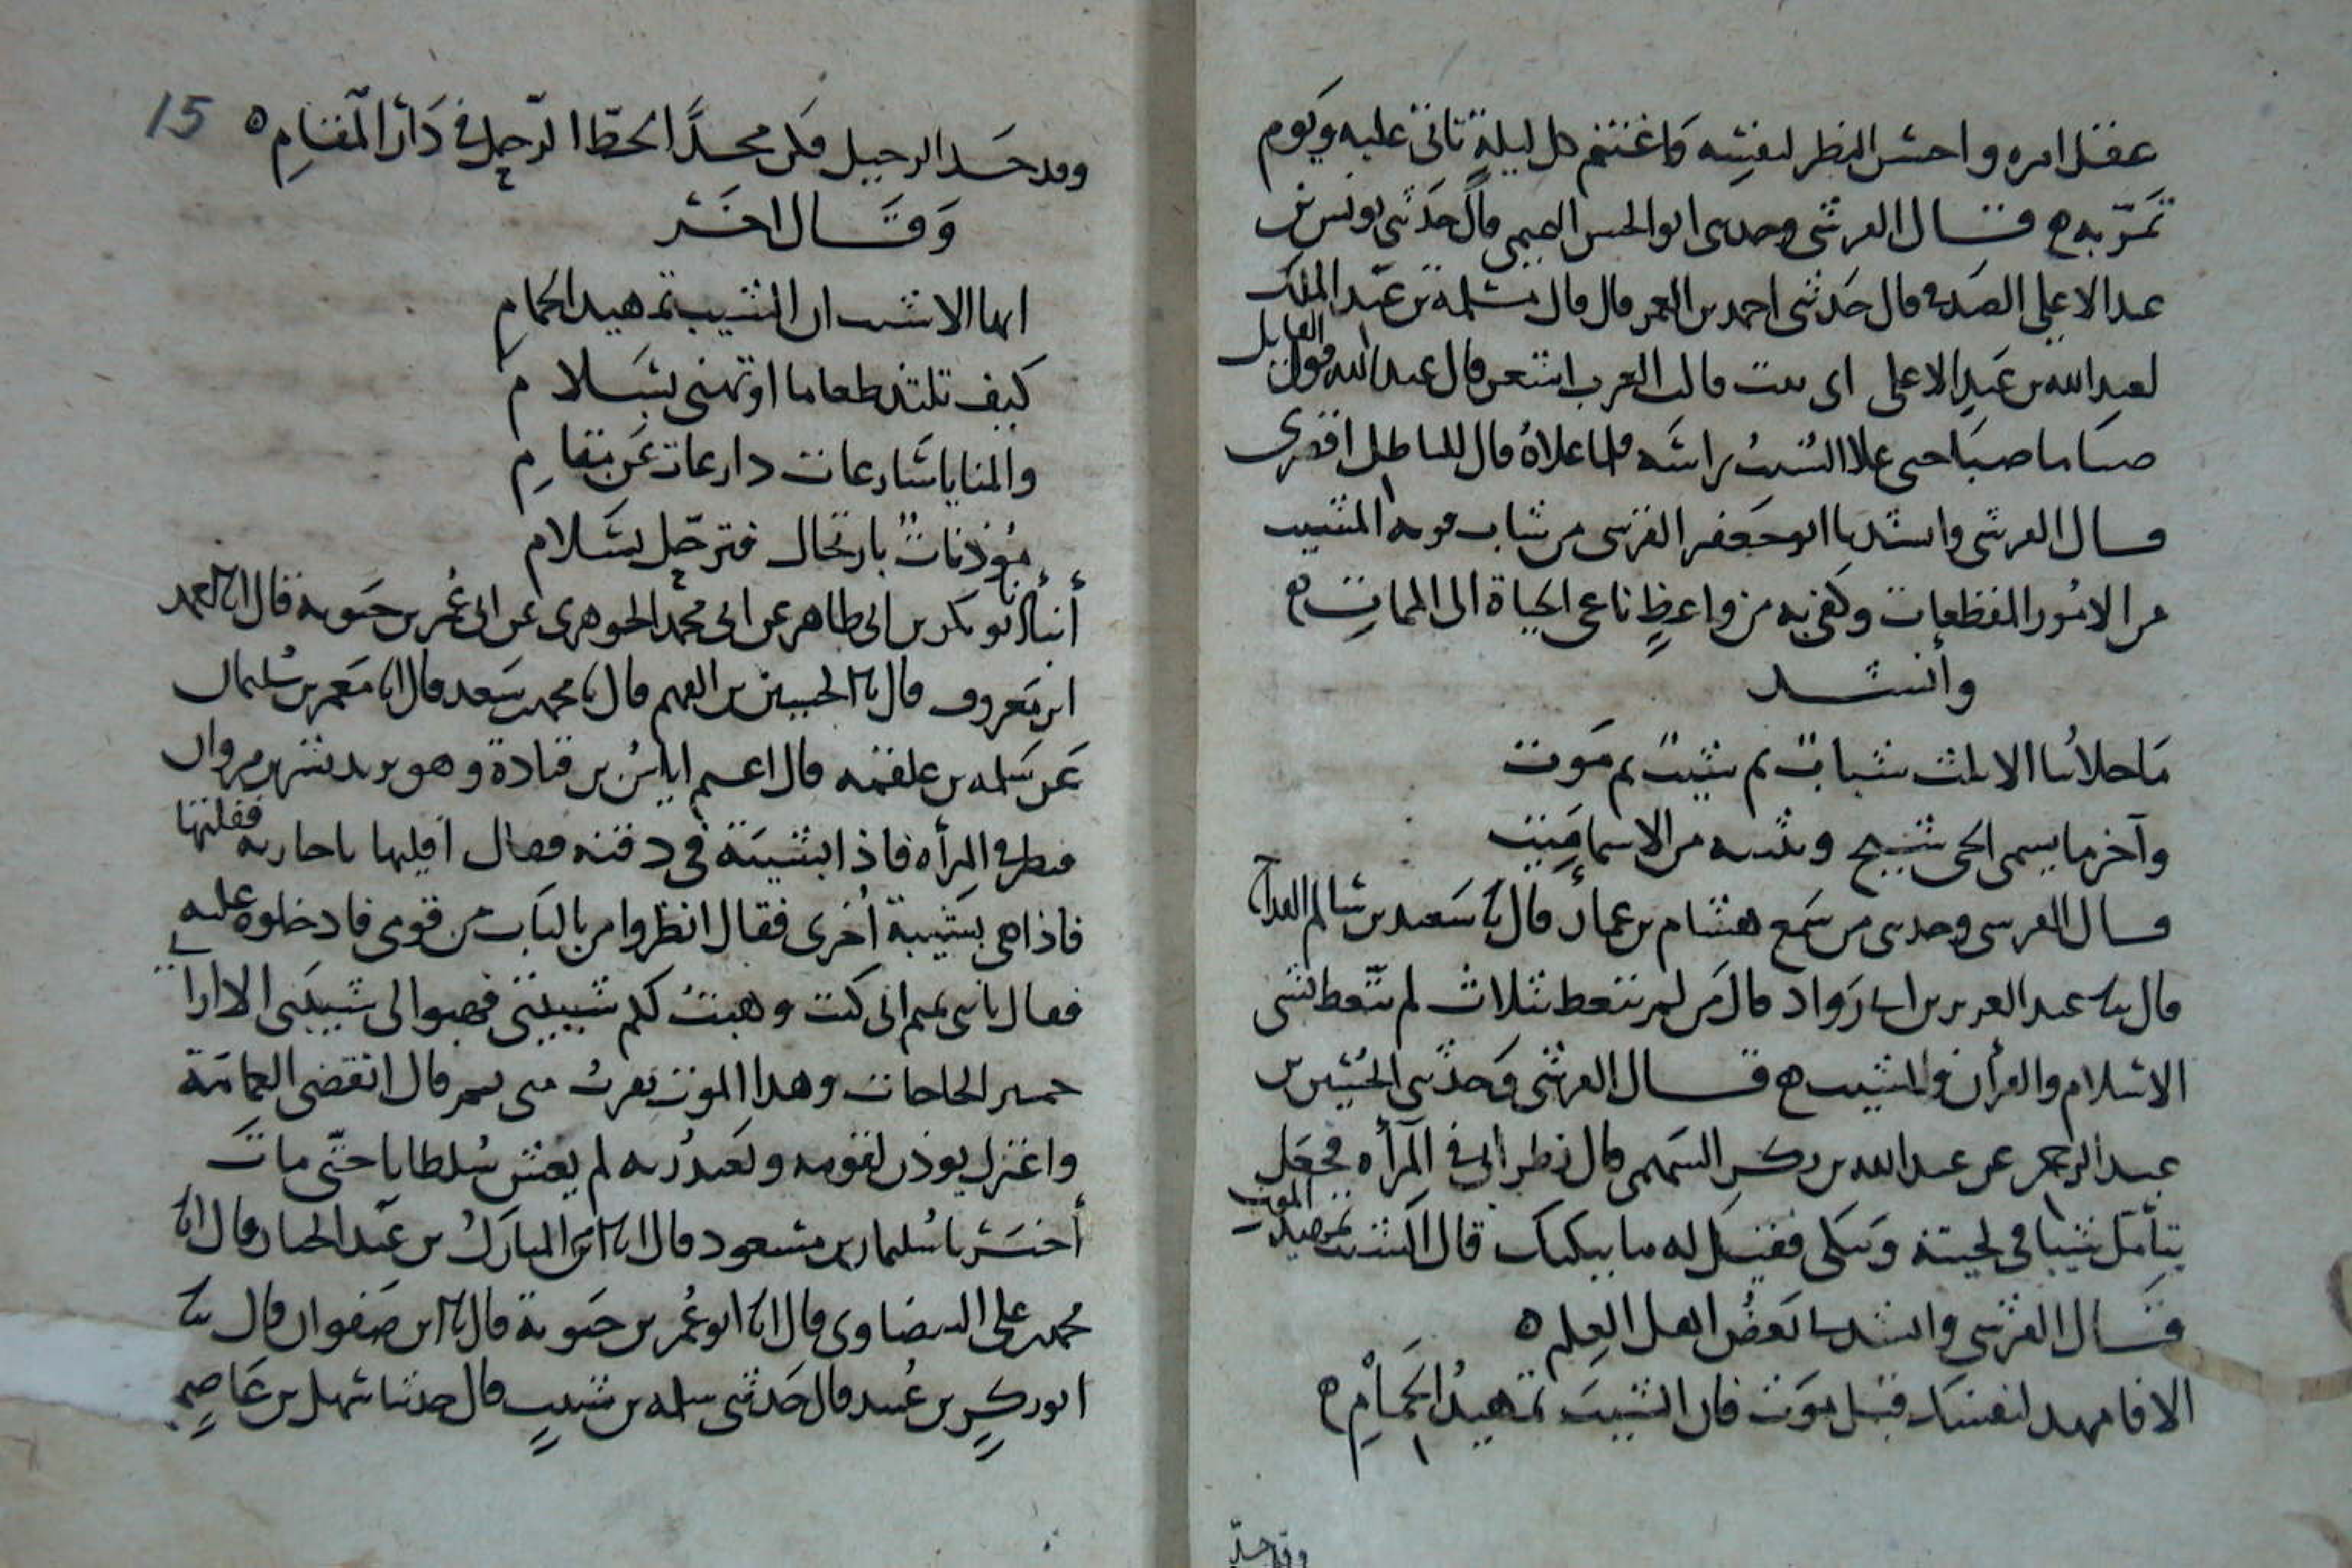 عقل امره واحسن النظر لنفسه واغتنم كل ليلة تاتى عليه ويوم
تمر به ه قال القرشى وحدثنى ابو الحسن قال حدثنى يونس بن
عبد الاعلى الصدفى قال حدثنى احمد بن المعمر قال قال مسلمة بن عبد الملك
لعبد الله بن عبد الاعلى اى بيت قالت العرب اشعر قال عبد الله قول القايل
صبا ما صبا حتى علا الشيب راسه فلما علاه قال للباطل اقصرى
قال القرشى وانشدنا ابو جعفر القرشى من شاب فوته المشيب
من الامور المفظعات وكفى به من واعظ ناعى الحياة الى الممات ه
وأنشد
ما حلانا الا ثلث شباب ثم شيب ثم موت
وآخر ما يسمى الحى شيخ وتشبه من الاسما ميت
قال القرشى وحدثنى من سمع هشام بن عمار قال ثنا سعيد بن سالم القداح
قال ثنا عبد العزيز بن ابى رواد قال من لم يتعظ بثلاث لم يتعظ بشى
الاسلام والقرأن والمشيب ه قال القرشى وحدثنى الحسين بن
عبد الرحمن عن عبد الله بن بكر السهمى قال نظر ابى فى المرأه فجعل
يتأمل شيبا فى لحيته ويبكى فقيل له ما يبكيك قال الشيب تمهيد الموت
قال القرشى وانشدنا بعض اهل العلم ه
الا فامهد لنفسك قبل موت فان الشيب تمهيد الحمام ه
وقد جد
15
وقد جد الرحيل فكن مجدا لحط الرحل فى دار المقام ه
وقال اخر
ايها الاشيب ان الشيب تمهيد الحمام
كيف تلتذ طعاما او تهنى بسلام
والمنايا شارعات دارعات عن مقام
مؤذنات بارتحال فترحل بسلام
أنبأنا ابو بكر بن ابى طاهر عن ابى محمد الجوهرى عن ابى عمر بن حيويه قال انا احمد
ابن معروف قال ثنا الحسين بن الفهم قال ثنا محمد بن سعد قال انا معمر بن سليمان
عن سلمه بن علقمه قال اعتم اياس بن قتادة وهو يريد بشر بن مروان
فنظر فى المرأه فاذا بشيبة فى ذقنه فقال افليها يا جاريه ففلتها
فاذا هى بشيبة أخرى فقال انظروا من بالباب من قومى فادخلوه عليه
فقال يا بنى تميم انى كنت وهبت لكم شبيبتى فهبوا لى شيبتى الا ارانى
حمير الحاجات وهذا الموت يقرب منى ثم قال انقضى العمامة
واعتزل يوذن لقومه ويعبد ربه لم يغش سلطانا حتى مات
أخبرنا سليمان بن مسعود قال انا ابن المبارك بن عبد الجبار قال انا
محمد بن على البيضاوى قال انا ابو عمر بن حيوية قال ثنا ابن صفوان قال ثنا
ابو بكر بن عبيد قال حدثنى سلمه بن شبيب قال حدثنا سهل بن عاصم